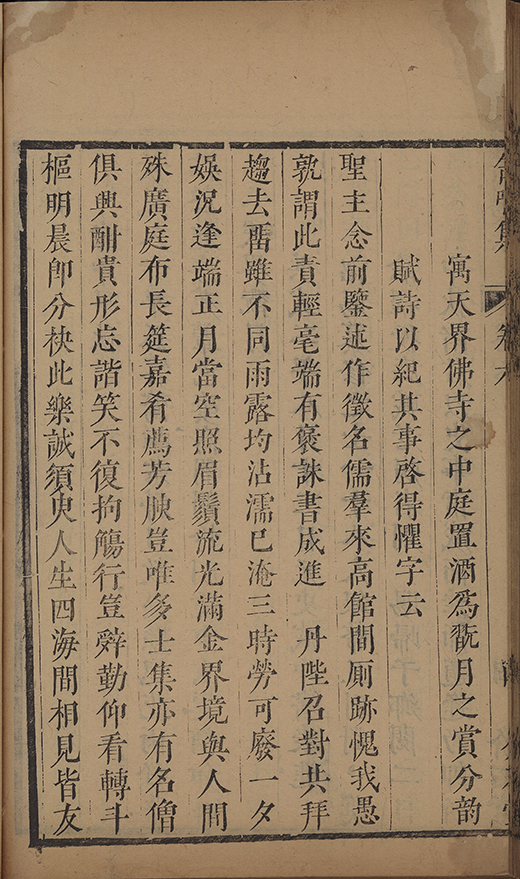 寓天界佛寺之中庭置酒爲翫月之賞分韵
賦詩以紀其事啓得懼字云
聖主念前鑒述作徵名儒羣來高館間厠跡愧我愚
孰謂此責輕毫端有褒誅書成進 丹陛召對共拜
趨去畱雖不同雨露均沾濡巳淹三時勞可廢一夕
娛況逢端正月當空照眉鬚流光滿金界境與人間
殊廣庭布長筵嘉肴薦芳腴豈唯多士集亦有名僧
俱興酣貴形忘諧笑不復拘觴行豈辤勤仰看轉斗
樞明晨卽分袂此樂誠須臾人生四海間相見皆友